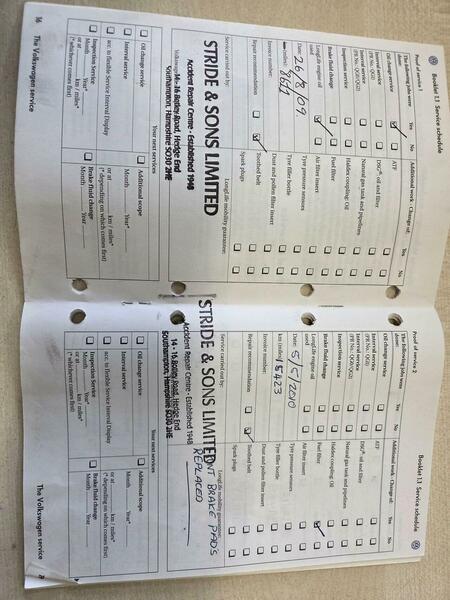 Booklet 1.1 Service schedule
Proof of service 1
The following jobs were done:
Yes No
Oil change service
Interval service (PR No. QG0/QG2)
Inspection service
Brake fluid change
LongLife engine oil used
Date: 26/8/09
(miles): 8611
Invoice number:
Repair recommendation
Additional work - Change of:
Yes No
ATF
DSG® oil and filter
Natural gas tank and pipelines
Haldex coupling: Oil
Fuel filter
Air filter insert
Tyre pressure sensors
Tyre filler bottle
Dust and pollen filter insert
Toothed belt
Spark plugs
Service carried out by:
LongLife mobility guarantee:
STRIDE & SONS LIMITED
Accident Repair Centre - Established 1948
14-16 Botley Road, Hedge End
Southampton, Hampshire SO30 2HE
Your next services
Oil change service
Interval service
acc. to flexible Service Interval Display
Inspection Service
Month Year
or at km / miles*
(* whichever comes first)
Additional scope
or at km / miles*
(* depending on which comes first)
Brake fluid change
Month Year
16 The Volkswagen service
Booklet 1.1 Service schedule
Proof of service 2
The following jobs were done:
Yes No
Oil change service
Interval service (PR No. QG0/QG2)
Inspection service
Brake fluid change
LongLife engine oil used
Date: 5/5/2010
km (miles): 15423
Invoice number:
Repair recommendation
Additional work - Change of:
Yes No
ATF
DSG® oil and filter
Natural gas tank and pipelines
Haldex coupling: Oil
Fuel filter
Air filter insert
Tyre pressure sensors
Tyre filler bottle
Dust and pollen filter insert
Toothed belt
Spark plugs
Service carried out by:
LongLife mobility guarantee:
STRIDE & SONS LIMITED
Accident Repair Centre - Established 1948
14 - 16 Botley Road, Hedge End
Southampton, Hampshire SO30 2HE
BRAKE PADS
REPLACED
Your next services
Oil change service
Interval service
acc. to flexible Service Interval Display
Inspection Service
Month Year
or at km / miles*
(* whichever comes first)
Additional scope
or at km / miles*
(* depending on which comes first)
Brake fluid change
Month Year
The Volkswagen service